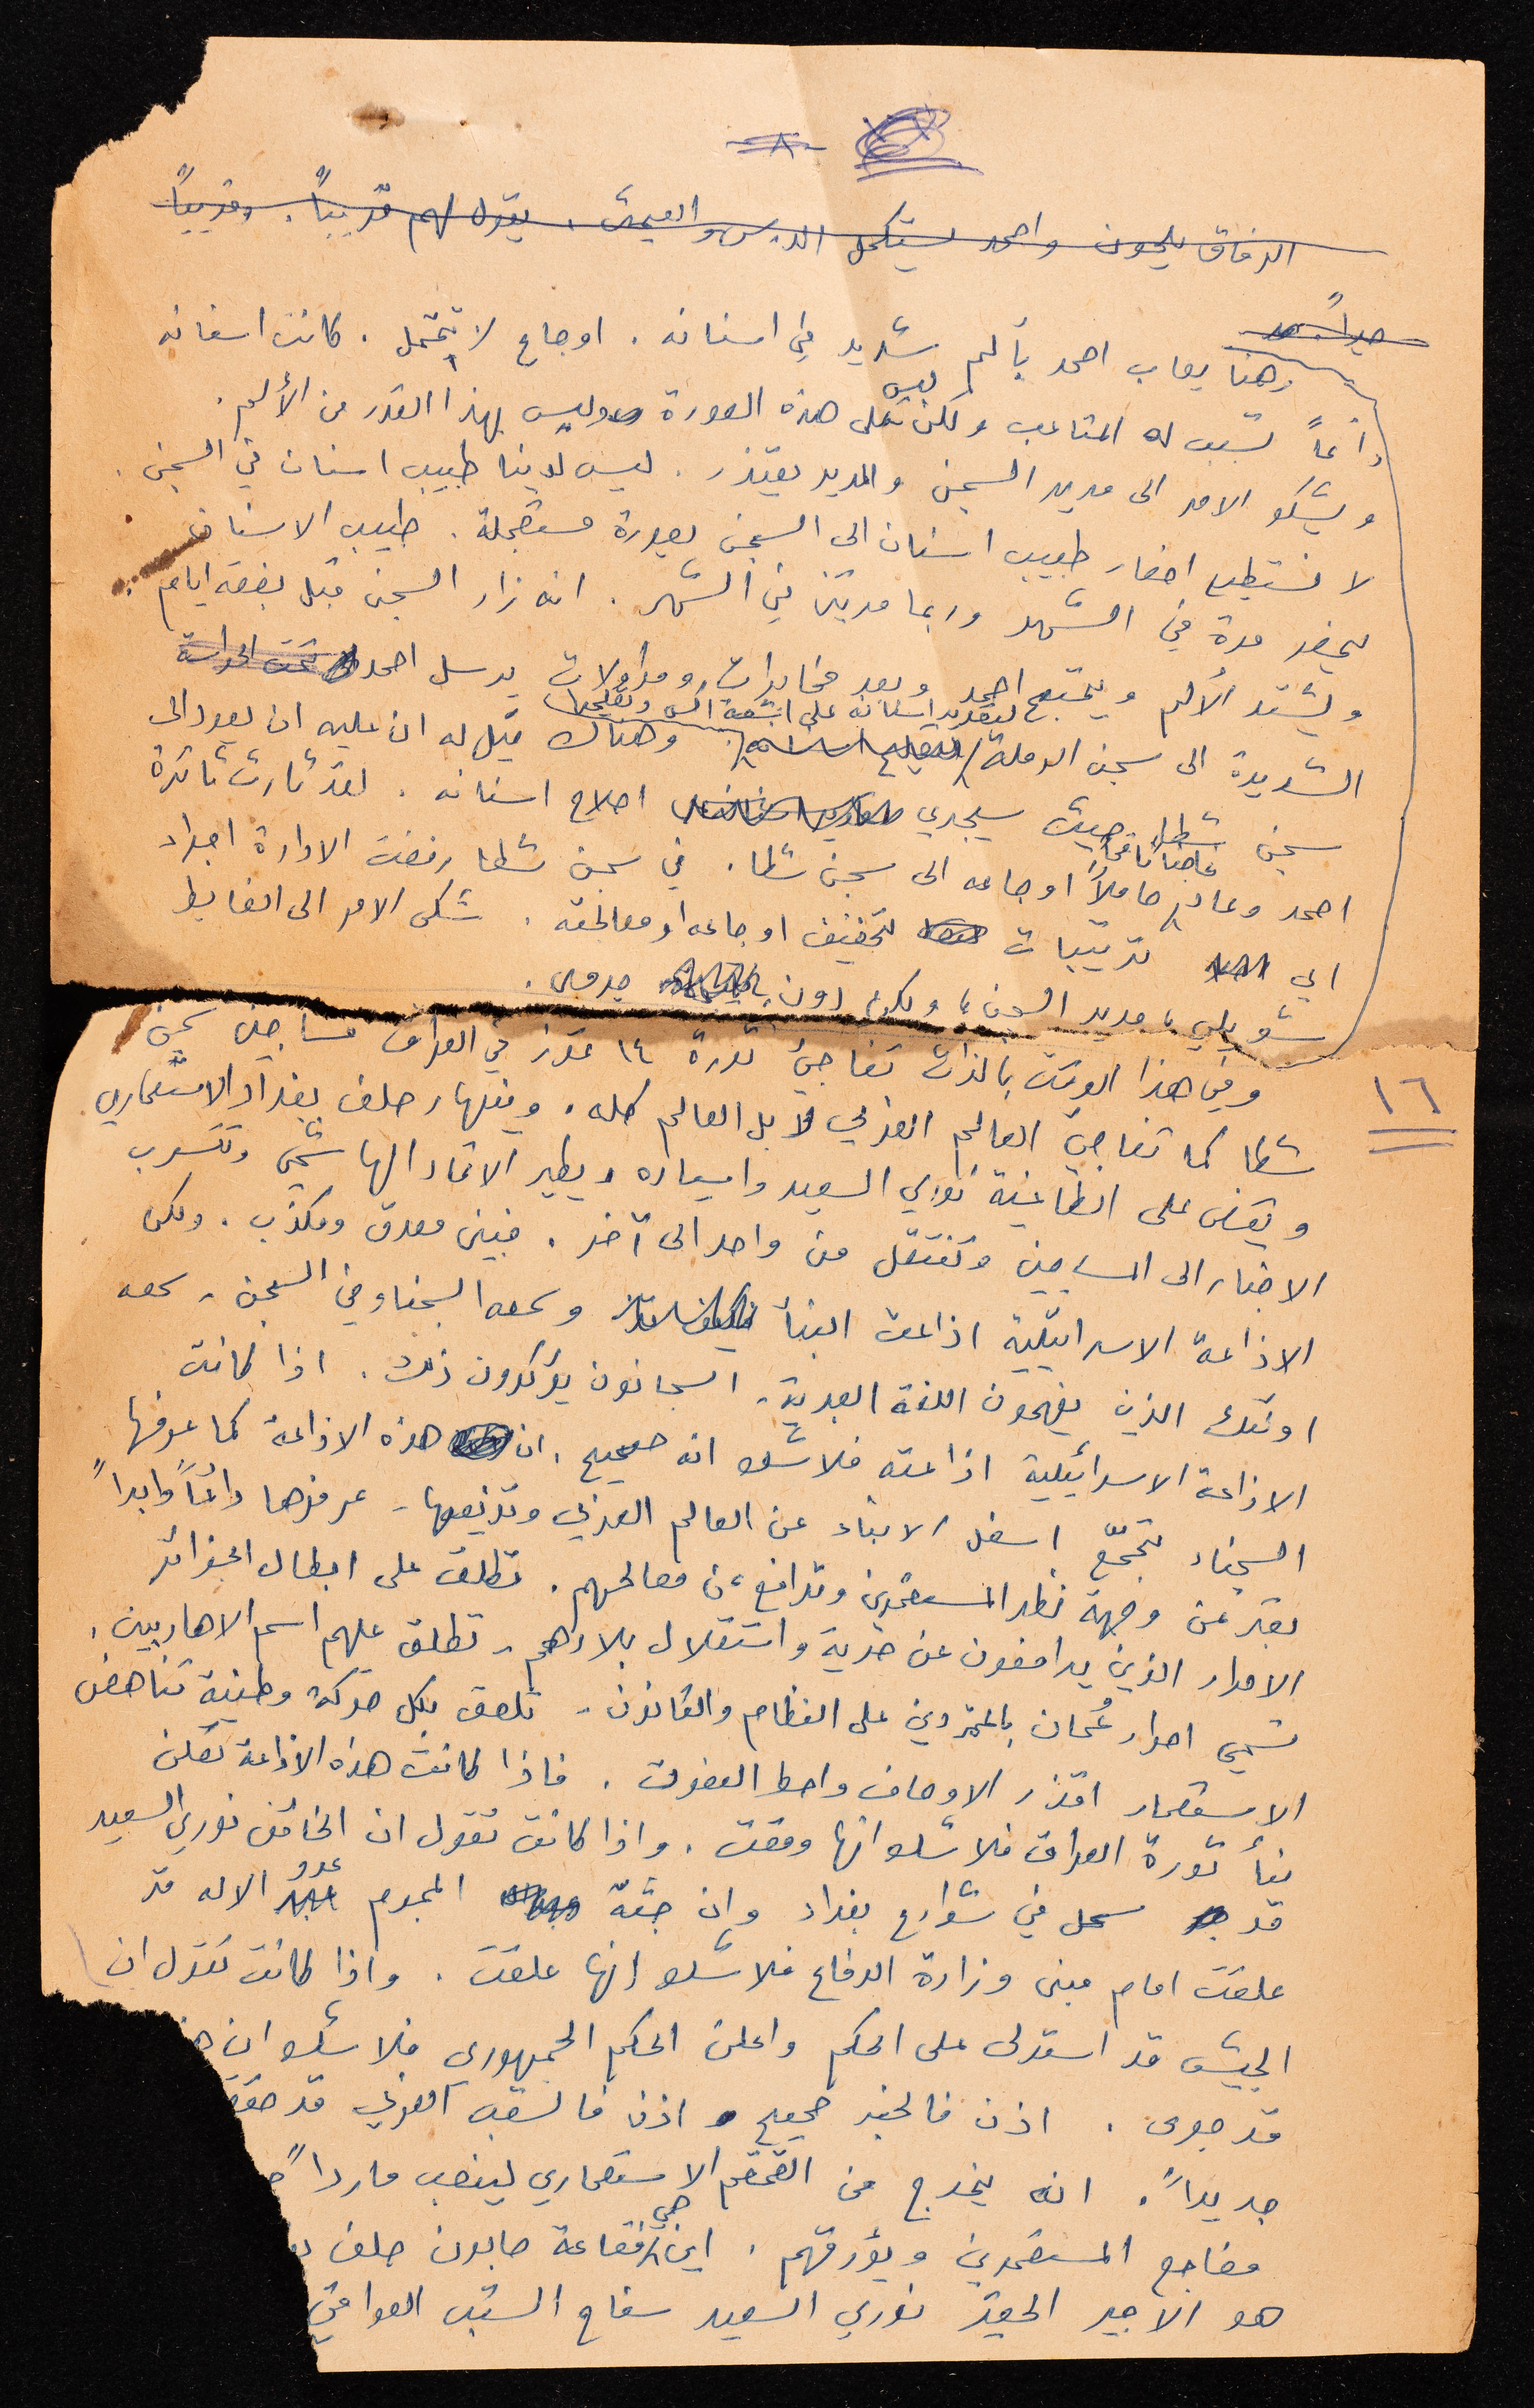 -٨-
الرفاق يلحون واحمد يستكمل الدرس والتحيص. يقول لهم قريباً. وقريباً
جداً.
وهنا يصاب احمد بألم شديد في اسنانه. اوجاع لا تحتمل. كانت اسنانه
دائماً تسبب له المتاعب ولكن ليس على هذه الصورة وليس بهذا القدر من الألم.
ويشكو الامر الى مدير السجن والمدير يعتذر. ليس لدينا طبيب اسنان في السجن.
لا نستطيع احضار طبيب اسنان الى السجن بصورة مستعجلة. طبيب الاسنان
يحضر مرة في الشهر وربما مرتين في الشهر. انه زار السجن قبل بضعة ايام.
ويشتد الألم ويحتج احمد وبعد مخابرات ومداولات يرسل احمد تحت الحراسة
الشديدة الى سجن الرملة لتصوير اسنانه على اشعة اكس وتقليعها. وهناك قيل له ان عليه ان يعود الى
سجن شطا حيث سيجري اصلاح اسنانه. لقد ثارت ثائرة
احمد وعاد غاضباً ناقماً حاملاً اوجاعه الى سجن شطا. في سجن شطا رفضت الادارة اجراء
اي ترتيبات لتخفيف اوجاعه او معالجته. شكى الامر الى الضابط
شويلي، مدير السجن، ولكن دون جدوى.
١٦
وفي هذا الوقت بالذات تفاجئ ثورة ١٤ تموز في العراق مساجين سجن
شطا كما تفاجئ العالم العربي لا بل العالم كله. وينهار حلف بغداد الاستعماري
ويقضى على الطاغية نوري السعيد واسياده ويطير الاتحاد الهاشمي وتتسرب
الاخبار الى المساجين وتنتقل من واحد الى آخر. فبين مصدق ومكذب. ولكن
الاذاعة الاسرائيلية اذاعت النبأ وسمعه السجناء في السجن - سمعه
اولئك الذين يفهمون اللغة العبرية - السجانون يؤكدون ذلك. اذا كانت
الاذاعة الاسرائيلية اذاعته فلا شك انه صحيح. ان هذه الاذاعة كما عرفها
السجناء تتجمّع اسفل الانباء عن العالم العربي وتذيعها - عرفوها دائماً وابداً
تعبّر عن وجهة نظر المستعمرين وتدافع عن مصالحهم. تطلق على ابطال الجزائر
الاحرار الذين يدافعون عن حرية واستقلال بلادهم - تطلق عليهم اسم الارهابيين.
تسمي احرار عُمان بالمتمردين على النظام والقانون - تلصق بكل حركة وطنية تناهض
الاستعمار اقذر الاوصاف واحط النعوت. فاذا كانت هذه الاذاعة تعلن
نبأ ثورة العراق فلا شك انها وقعت. واذا كانت تقول ان الخائن نوري السعيد
قد سحل في شوارع بغداد وان جثة المجرم عدو الاله قد
علقت امام مبنى وزارة الدفاع فلا شك انها علقت. واذا كانت تقول ان
الجيش قد استولى على الحكم واعلن الحكم الجمهوري فلا شك ان
قد جرى. اذن فالخبر صحيح. اذن فالشعب العربي قد
جديداً. انه يخرج من القمقم الاستعماري لينصب مارداً
مضاجع المستعمرين ويؤرقهم. اين هي فقاعة صابون حلف
هو الاجير الحقير نوري السعيد سفاح الشعب العراقي